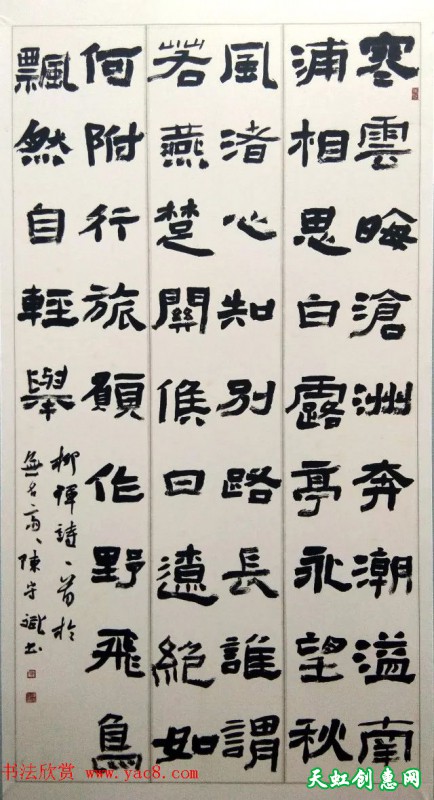 寒雲晦滄洲奔潮溢南
浦相思白露亭永望秋
風渚心知別路長誰謂
若燕楚關候日遼絕如
何附行旅願作野飛鳥
飄然自輕舉
柳惲詩一首於
陳守
书法欣赏 www.yac8.com
天虹创惠网